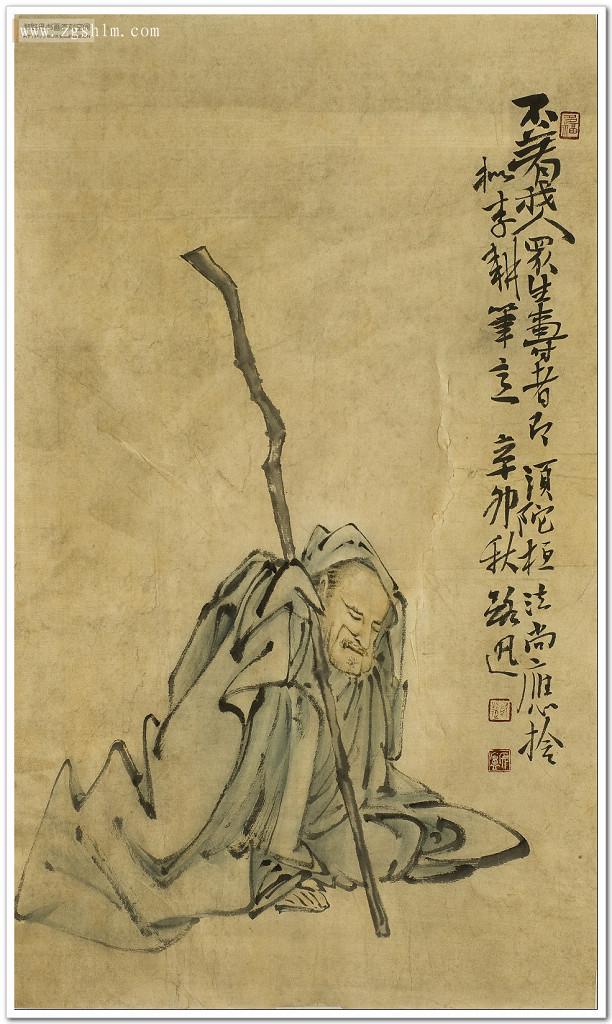 www.zgshlm.com
不著我人眾生壽者即須陀桓法尚應捨
拟李耕筆意 辛卯秋 路迅